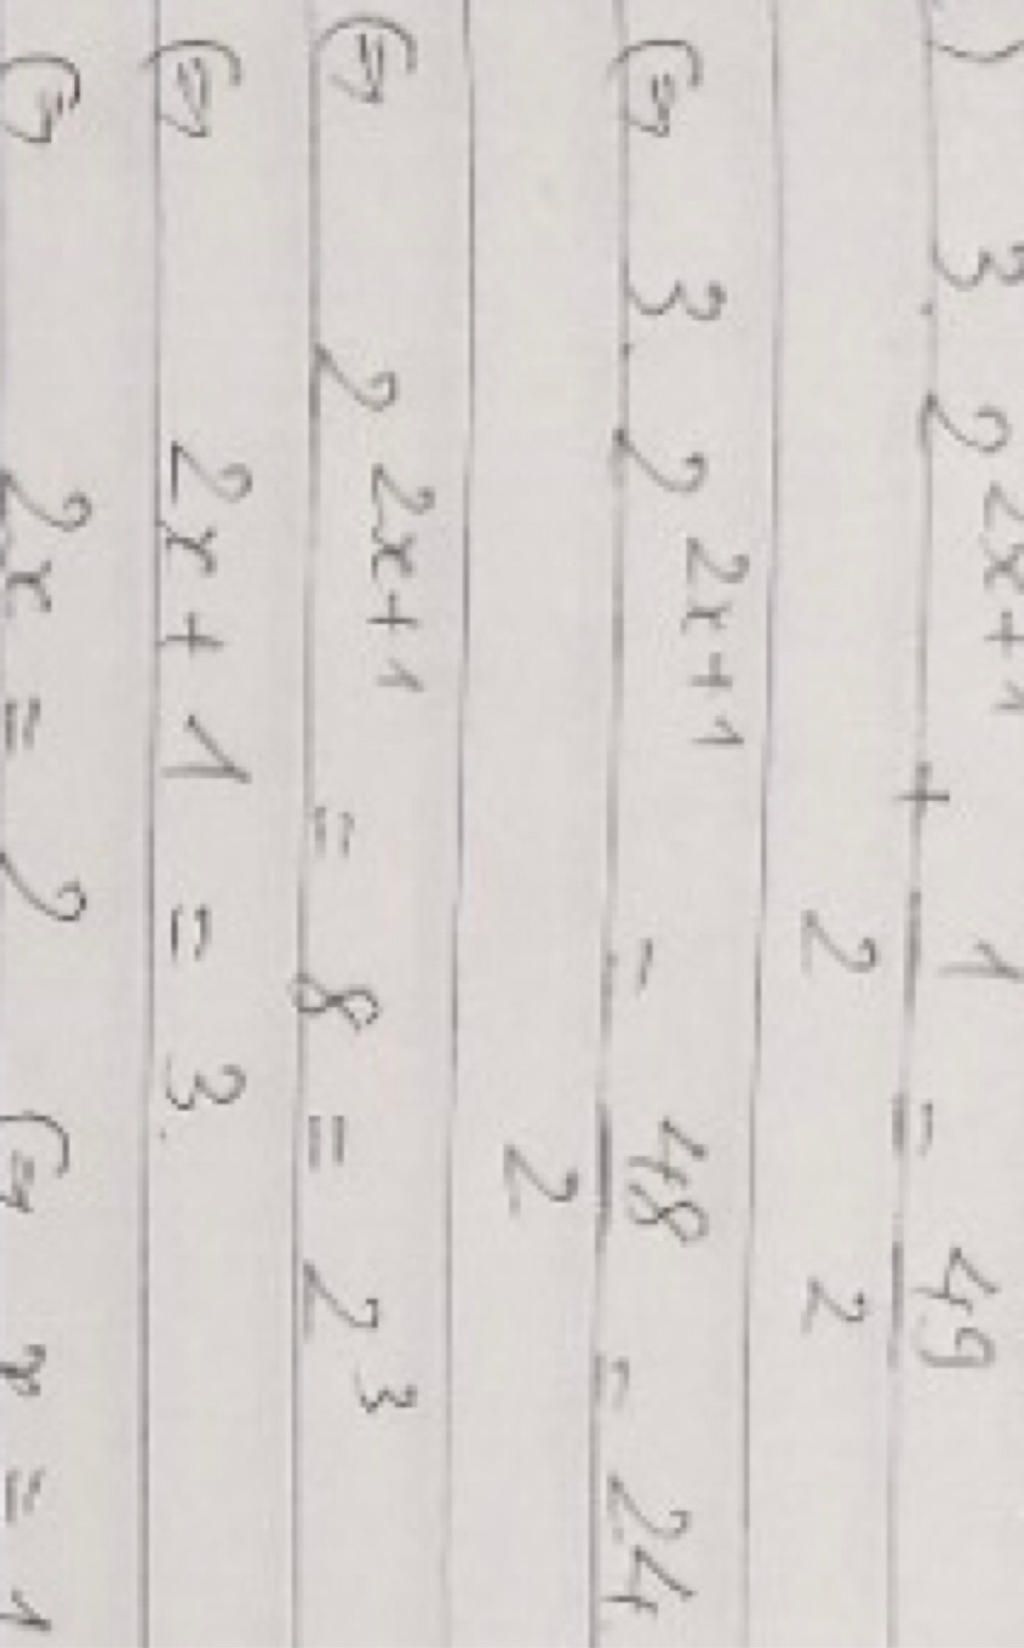 ) 3 . 2^{2x+1} + \frac{1}{2} = \frac{49}{2}
(=) 3 . 2^{2x+1} = \frac{48}{2} = 24
(=) 2^{2x+1} = 8 = 2^3
(=) 2x + 1 = 3
(=) 2x = 2 (=) x = 1